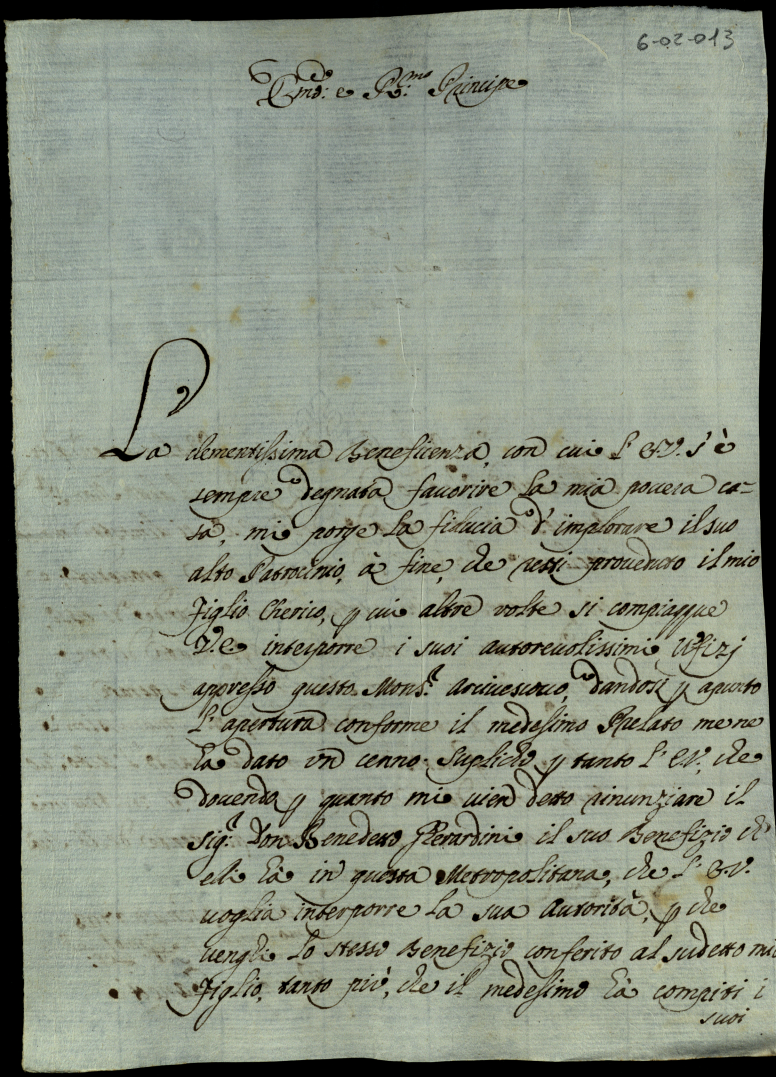 6-02-013
Em̃o: e R.mo: Principe
La clementissima Beneficenza, con cui l'E.V. s'è
sempre degnata favorire la mia povera ca-
sa, mi porge la fiducia d'implorare il suo
alto Patrocinio, à fine, che resti proveduto il mio
Figlio Cherico, p cui altre volte si compiacque
V.E. interporre i suoi autorevolissimi Ufizj
appresso questo Mons.r Arcivescovo, dandosi p apunto
l'apertura conforme il medesimo Prelato me ne
hà dato vn cenno. Suplico p tanto l'E.V. che
dovendo p quanto mi vien detto rinunziare il
Sig.r Don Benedetto Gherardini il suo Benefizio ch'
eli hà in questa Metropolitana, che l'E.V.
voglia interporre la sua Autorità, p che
venghi lo stesso Benefizio conferito al sudetto mio
Figlio, tanto più, che il medesimo hà compiti i
suoi